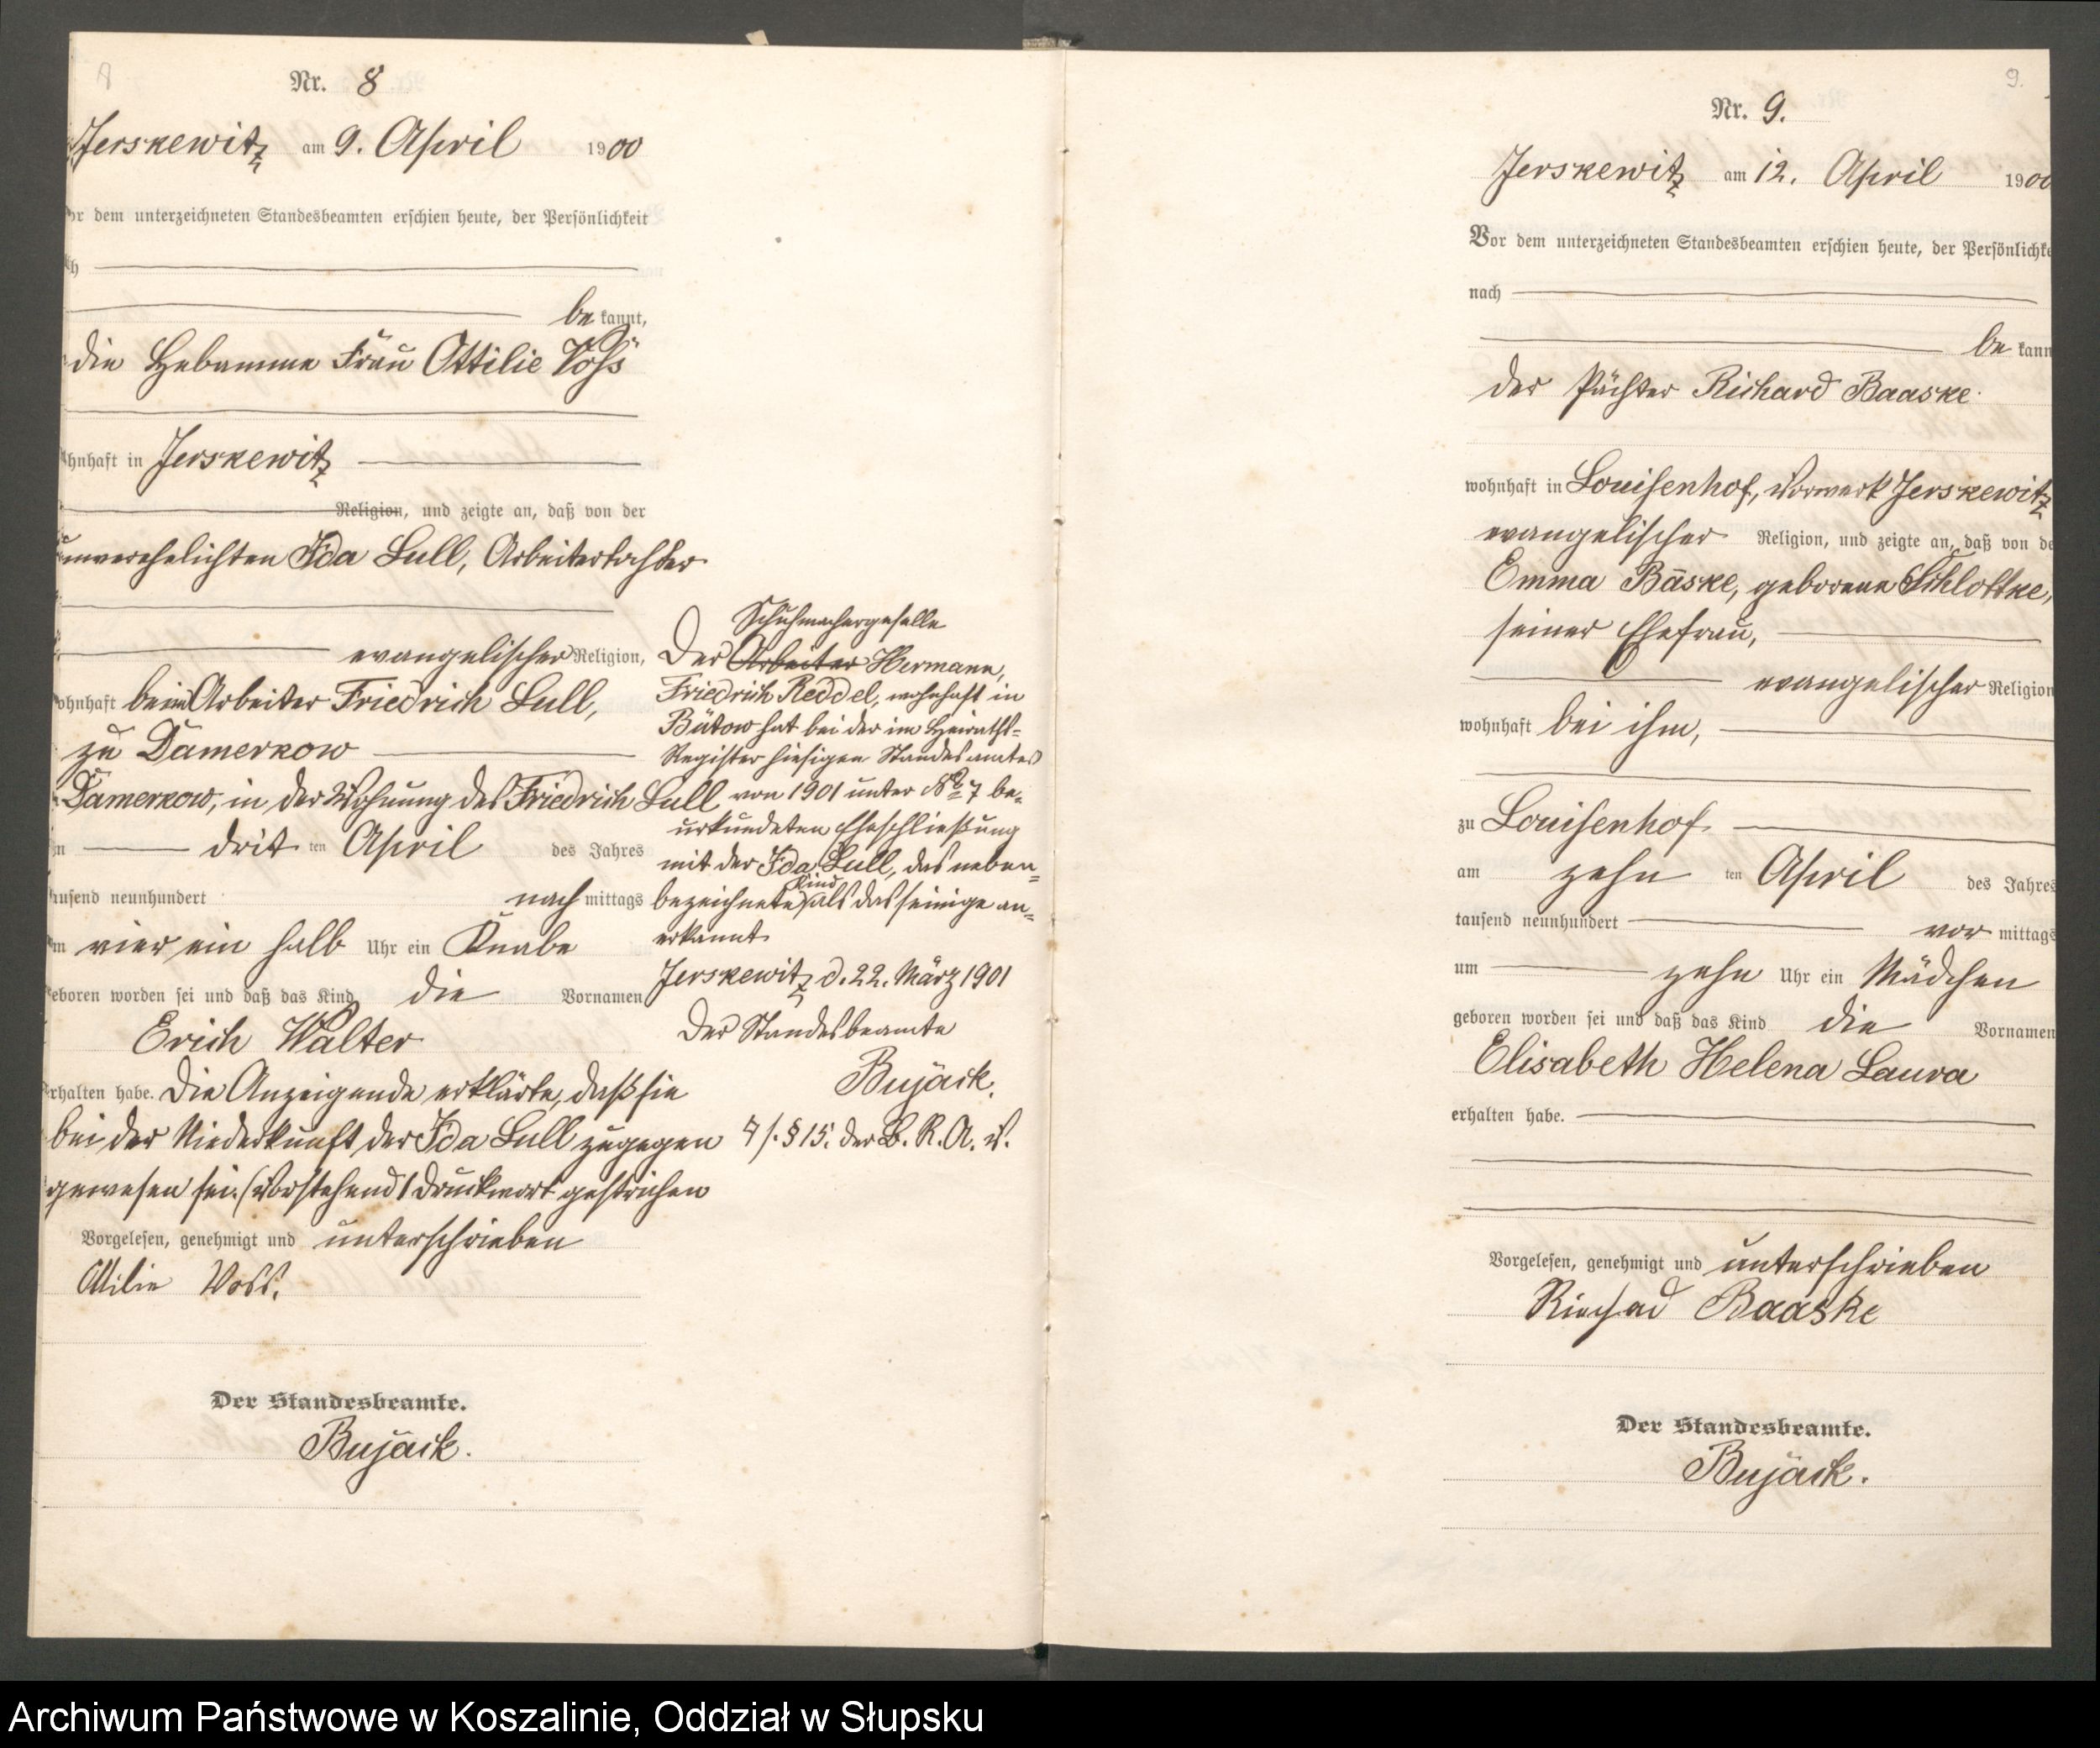 8
Nr. 8
Jerskewitz am 9. April 1900
or dem unterzeichneten Standesbeamten erschien heute, der Persönlichkeit
ch
be kannt,
die Hebamme Frau Ottilie Voß
ohnhaft in Jerskewitz
Religion, und zeigte an, daß von der
unverehelichten Ida Lull, Arbeitertochter
evangelischer Religion,
ohnhaft beim Arbeiter Friedrich Lull,
zu Damerkow
Damerkow, in der Wohnung des Friedrich Lull
drit ten April des Jahres
tausend neunhundert nach mittags
um vier ein halb Uhr ein Knabe
geboren worden sei und daß das Kind die Vornamen
Erich Walter
erhalten habe. Die Anzeigende erklärte, daß sie
bei der Niederkunft der Ida Lull zugegen
gewesen sei. (Vorstehend 1 Druckwort gestrichen
Vorgelesen, genehmigt und unterschrieben
Ottilie Voss.
Der Standesbeamte.
Bujack.
Schuhmachergeselle
Der Arbeiter Hermann,
Friedrich Reddel, wohnhaft in
Bütow hat bei der im Heiraths-
Register hiesigen Standesamtes
von 1901 unter No 7 be-
urkundeten Eheschließung
mit der Ida Lull, das neben-
bezeichnete Kind als das seinige an-
erkannt
Jerskewitz d. 22. März 1901
Der Standesbeamte
Bujack.
§ 15. der B. R. A. V.
9.
Nr. 9.
Jerskewitz am 12. April 1900
Vor dem unterzeichneten Standesbeamten erschien heute, der Persönlichke
nach
be kann
der Pächter Richard Baaske.
wohnhaft in Louisenhof, Vorwerk Jerskewitz
evangelischer Religion, und zeigte an, daß von de
Emma Baske, geborene Schlottke,
seiner Ehefrau,
evangelischer Religion
wohnhaft bei ihm,
zu Louisenhof
am zehn ten April des Jahres
tausend neunhundert vor mittags
um zehn Uhr ein Mädchen
geboren worden sei und daß das Kind die Vornamen
Elisabeth Helena Laura
erhalten habe.
Vorgelesen, genehmigt und unterschrieben
Richad Baaske
Der Standesbeamte.
Bujack.
Archiwum Państwowe w Koszalinie, Oddział w Słupsku